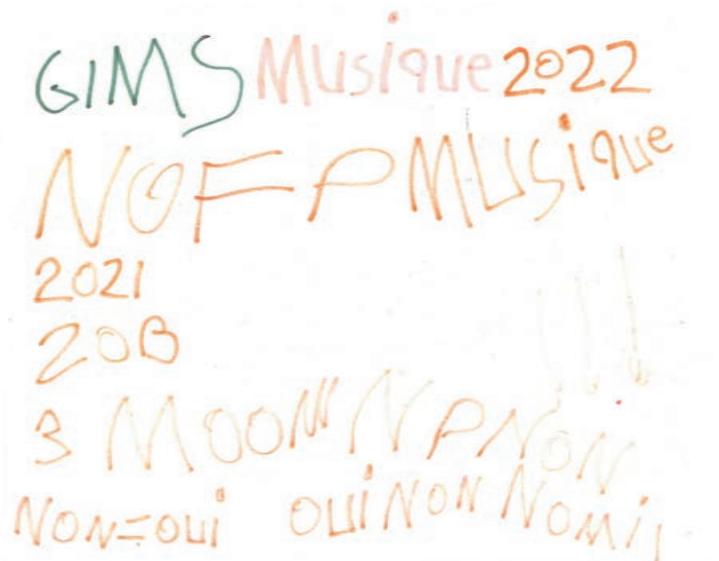 GIMS Musique 2022
NOFP MUSique
2021
20B
3 MOOM NPNON
!!!
NON=OUi OUiNON NOMi